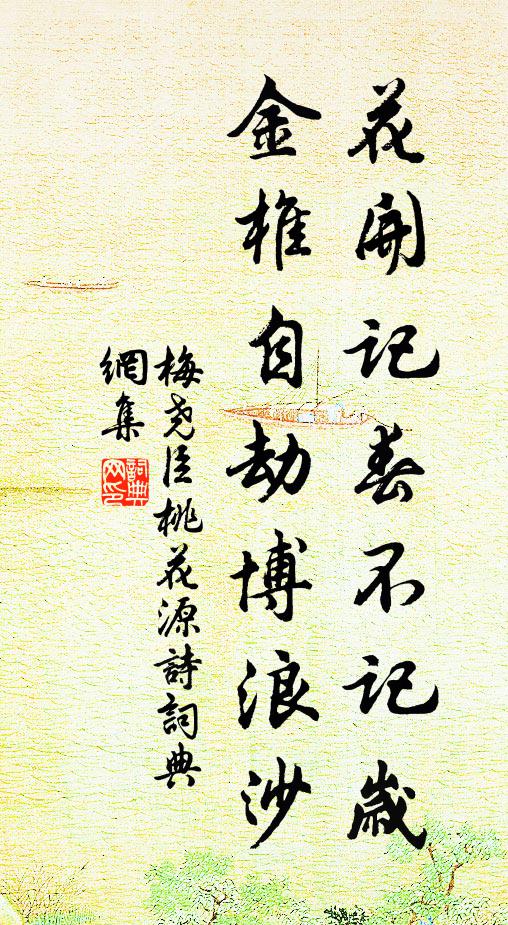 花開記春不記歲
金椎自劫博浪沙
梅堯臣桃花源詩詞典
網集
詞典
网印